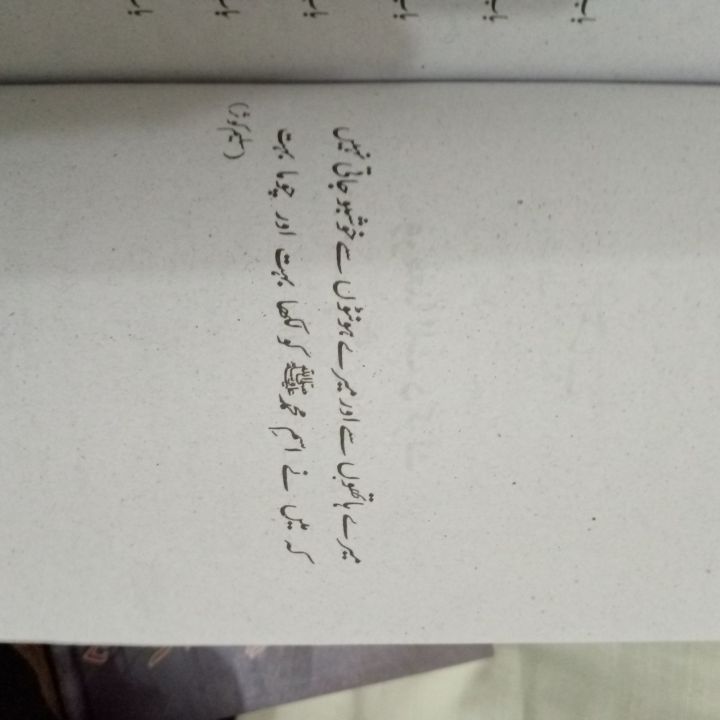 میرے ہاتھوں سے اور میرے ہونٹوں سے خوشبو جاتی نہیں
کہ میں نے اسمِ محمد ﷺ کو لکھا بہت اور چوما بہت
(سلیم کوثر)